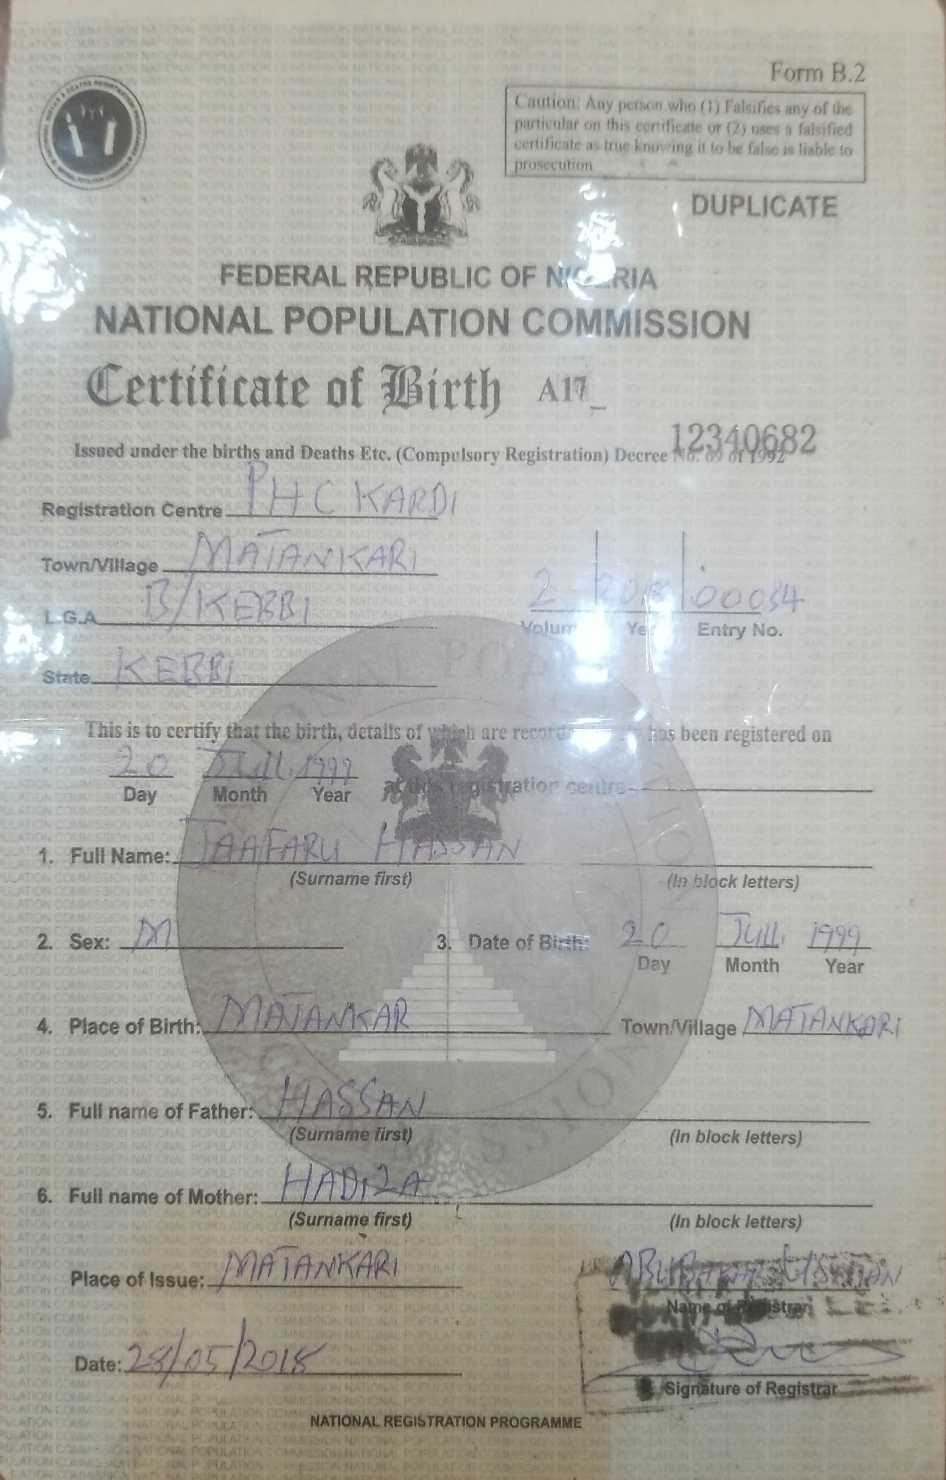 Form B.2
Caution: Any person who (1) Falsifies any of the
particular on this certificate or (2) uses a falsified
certificate as true knowing it to be false is liable to
prosecution
DUPLICATE
FEDERAL REPUBLIC OF NIGERIA
NATIONAL POPULATION COMMISSION
Certificate of Birth A17
12340682
Issued under the births and Deaths Etc. (Compulsory Registration) Decree No. 69 of 1992
Registration Centre PHC KARDI
Town/Village MATANKARI
L.G.A B/KEBBI
2 2018 00034
Volume Year Entry No.
State KEBBI
This is to certify that the birth, details of which are recorded has been registered on
20 JULL. 1999 at this registration centre
Day Month Year
1. Full Name: JAAFARU HASSAN
(Surname first) (In block letters)
2. Sex: M 3. Date of Birth: 20 JULL. 1999
Day Month Year
4. Place of Birth: MATANKAR Town/Village MATANKARI
5. Full name of Father: HASSAN
(Surname first) (In block letters)
6. Full name of Mother: HADIZA
(Surname first) (In block letters)
Place of Issue: MATANKARI ABUBAKAR USMAN
Name of Registrar
Date: 28/05/2018
Signature of Registrar
NATIONAL REGISTRATION PROGRAMME